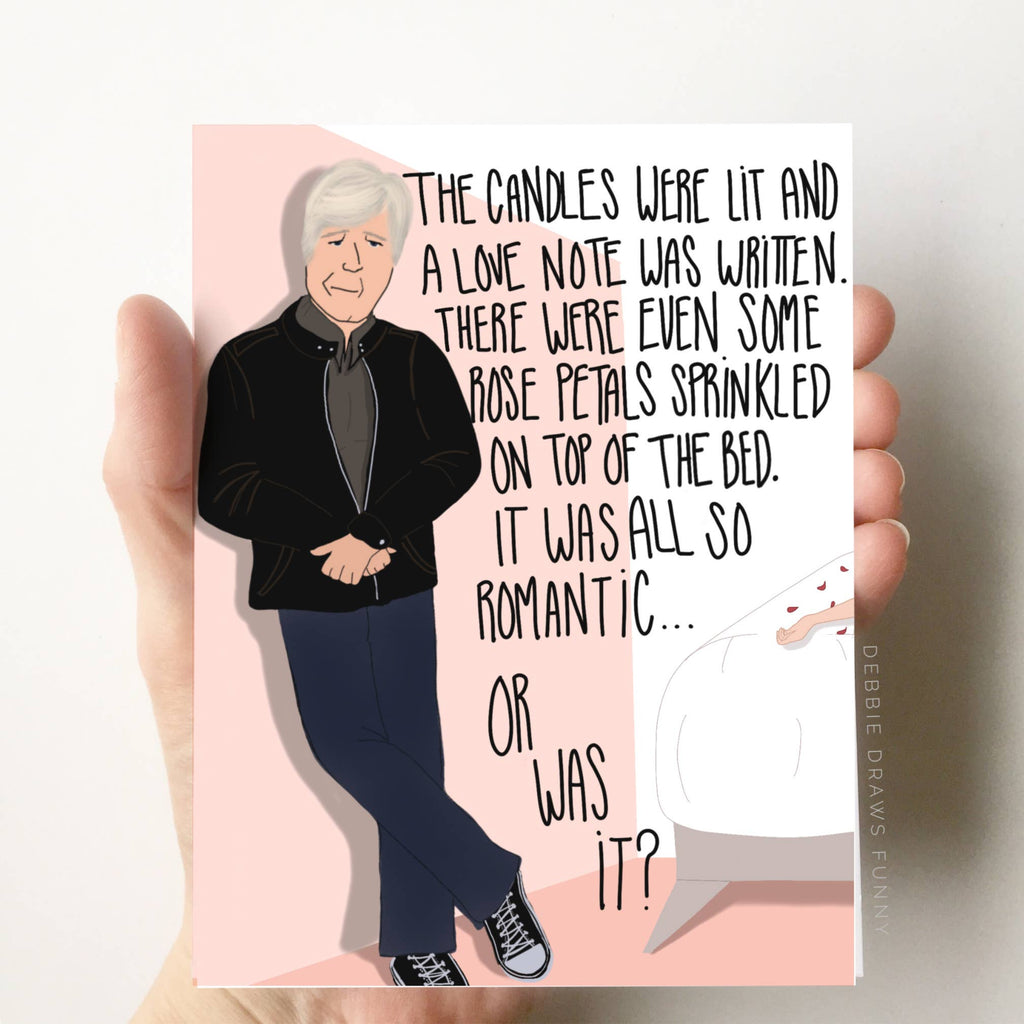 THE CANDLES WERE LIT AND
A LOVE NOTE WAS WRITTEN.
THERE WERE EVEN SOME
ROSE PETALS SPRINKLED
ON TOP OF THE BED.
IT WAS ALL SO
ROMANTIC...
OR
WAS
IT?
DEBBIE DRAWS FUNNY